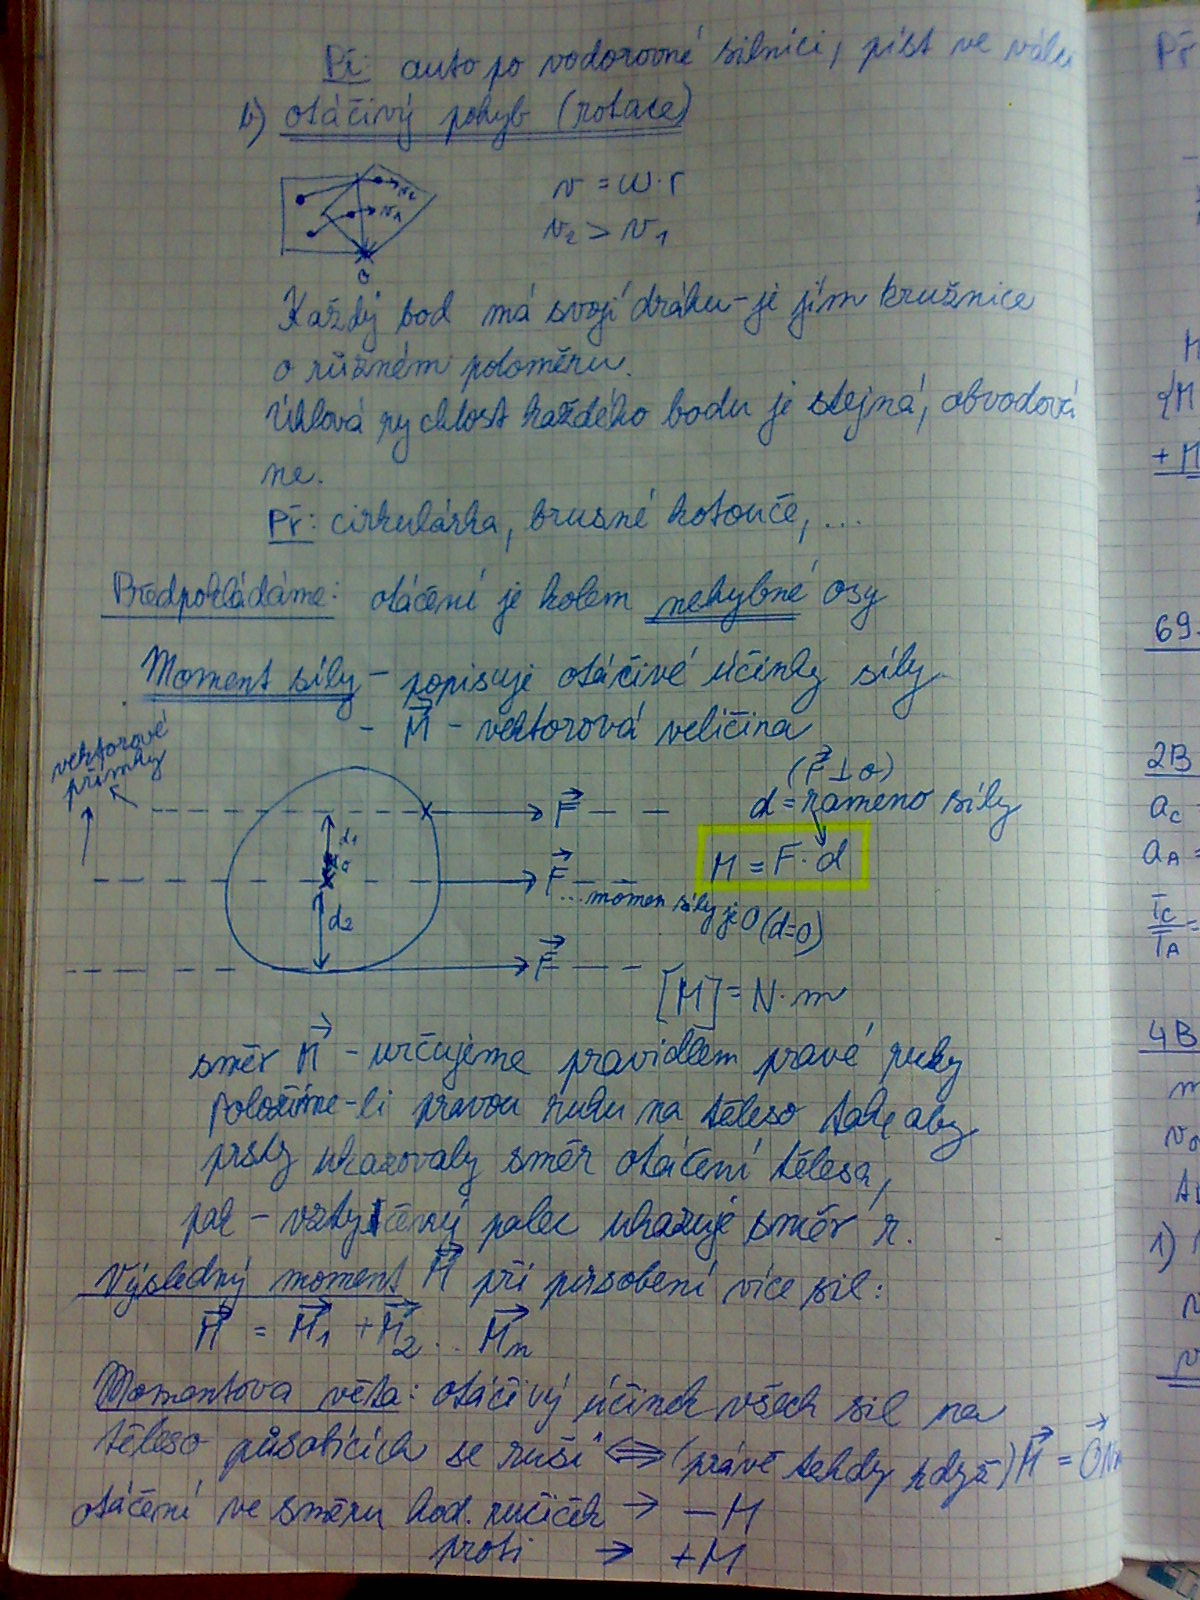 Př: auto po vodorovné silnici, píst ve válci
b) otáčivý pohyb (rotace)
v = ω·r
v₂ > v₁
v₂
v₁
o
Každý bod má svojí dráhu - je jím kružnice
o různém poloměru.
Úhlová rychlost každého bodu je stejná, obvodová
ne.
Př: cirkulárka, brusné kotouče, ...
Předpokládáme: otáčení je kolem nehybné osy
Moment síly - popisuje otáčivé účinky síly
- M⃗ - vektorová veličina
vektorové
přímky
(F⃗ ⊥ o)
d = rameno síly
F⃗
d₁
o
M = F · d
F⃗
...momen síly je 0 (d=0)
d₂
F⃗
[M] = N·m
směr M⃗ - určujeme pravidlem pravé ruky
položíme-li pravou ruku na těleso tak, aby
prsty ukazovaly směr otáčení tělesa,
pak - vztyčený palec ukazuje směr
Výsledný moment M⃗ při působení více sil:
M⃗ = M⃗₁ + M⃗₂ ... M⃗ₙ
Momentova věta: otáčivý účinek všech sil na
těleso působících se ruší ⇔ (právě tehdy když) M⃗ = 0⃗ Nm
otáčení ve směru hod. ručiček → - M
proti → + M
Př
69.
2B
a_C
a_A =
T_C
T_A
4B
m
v₀
1)